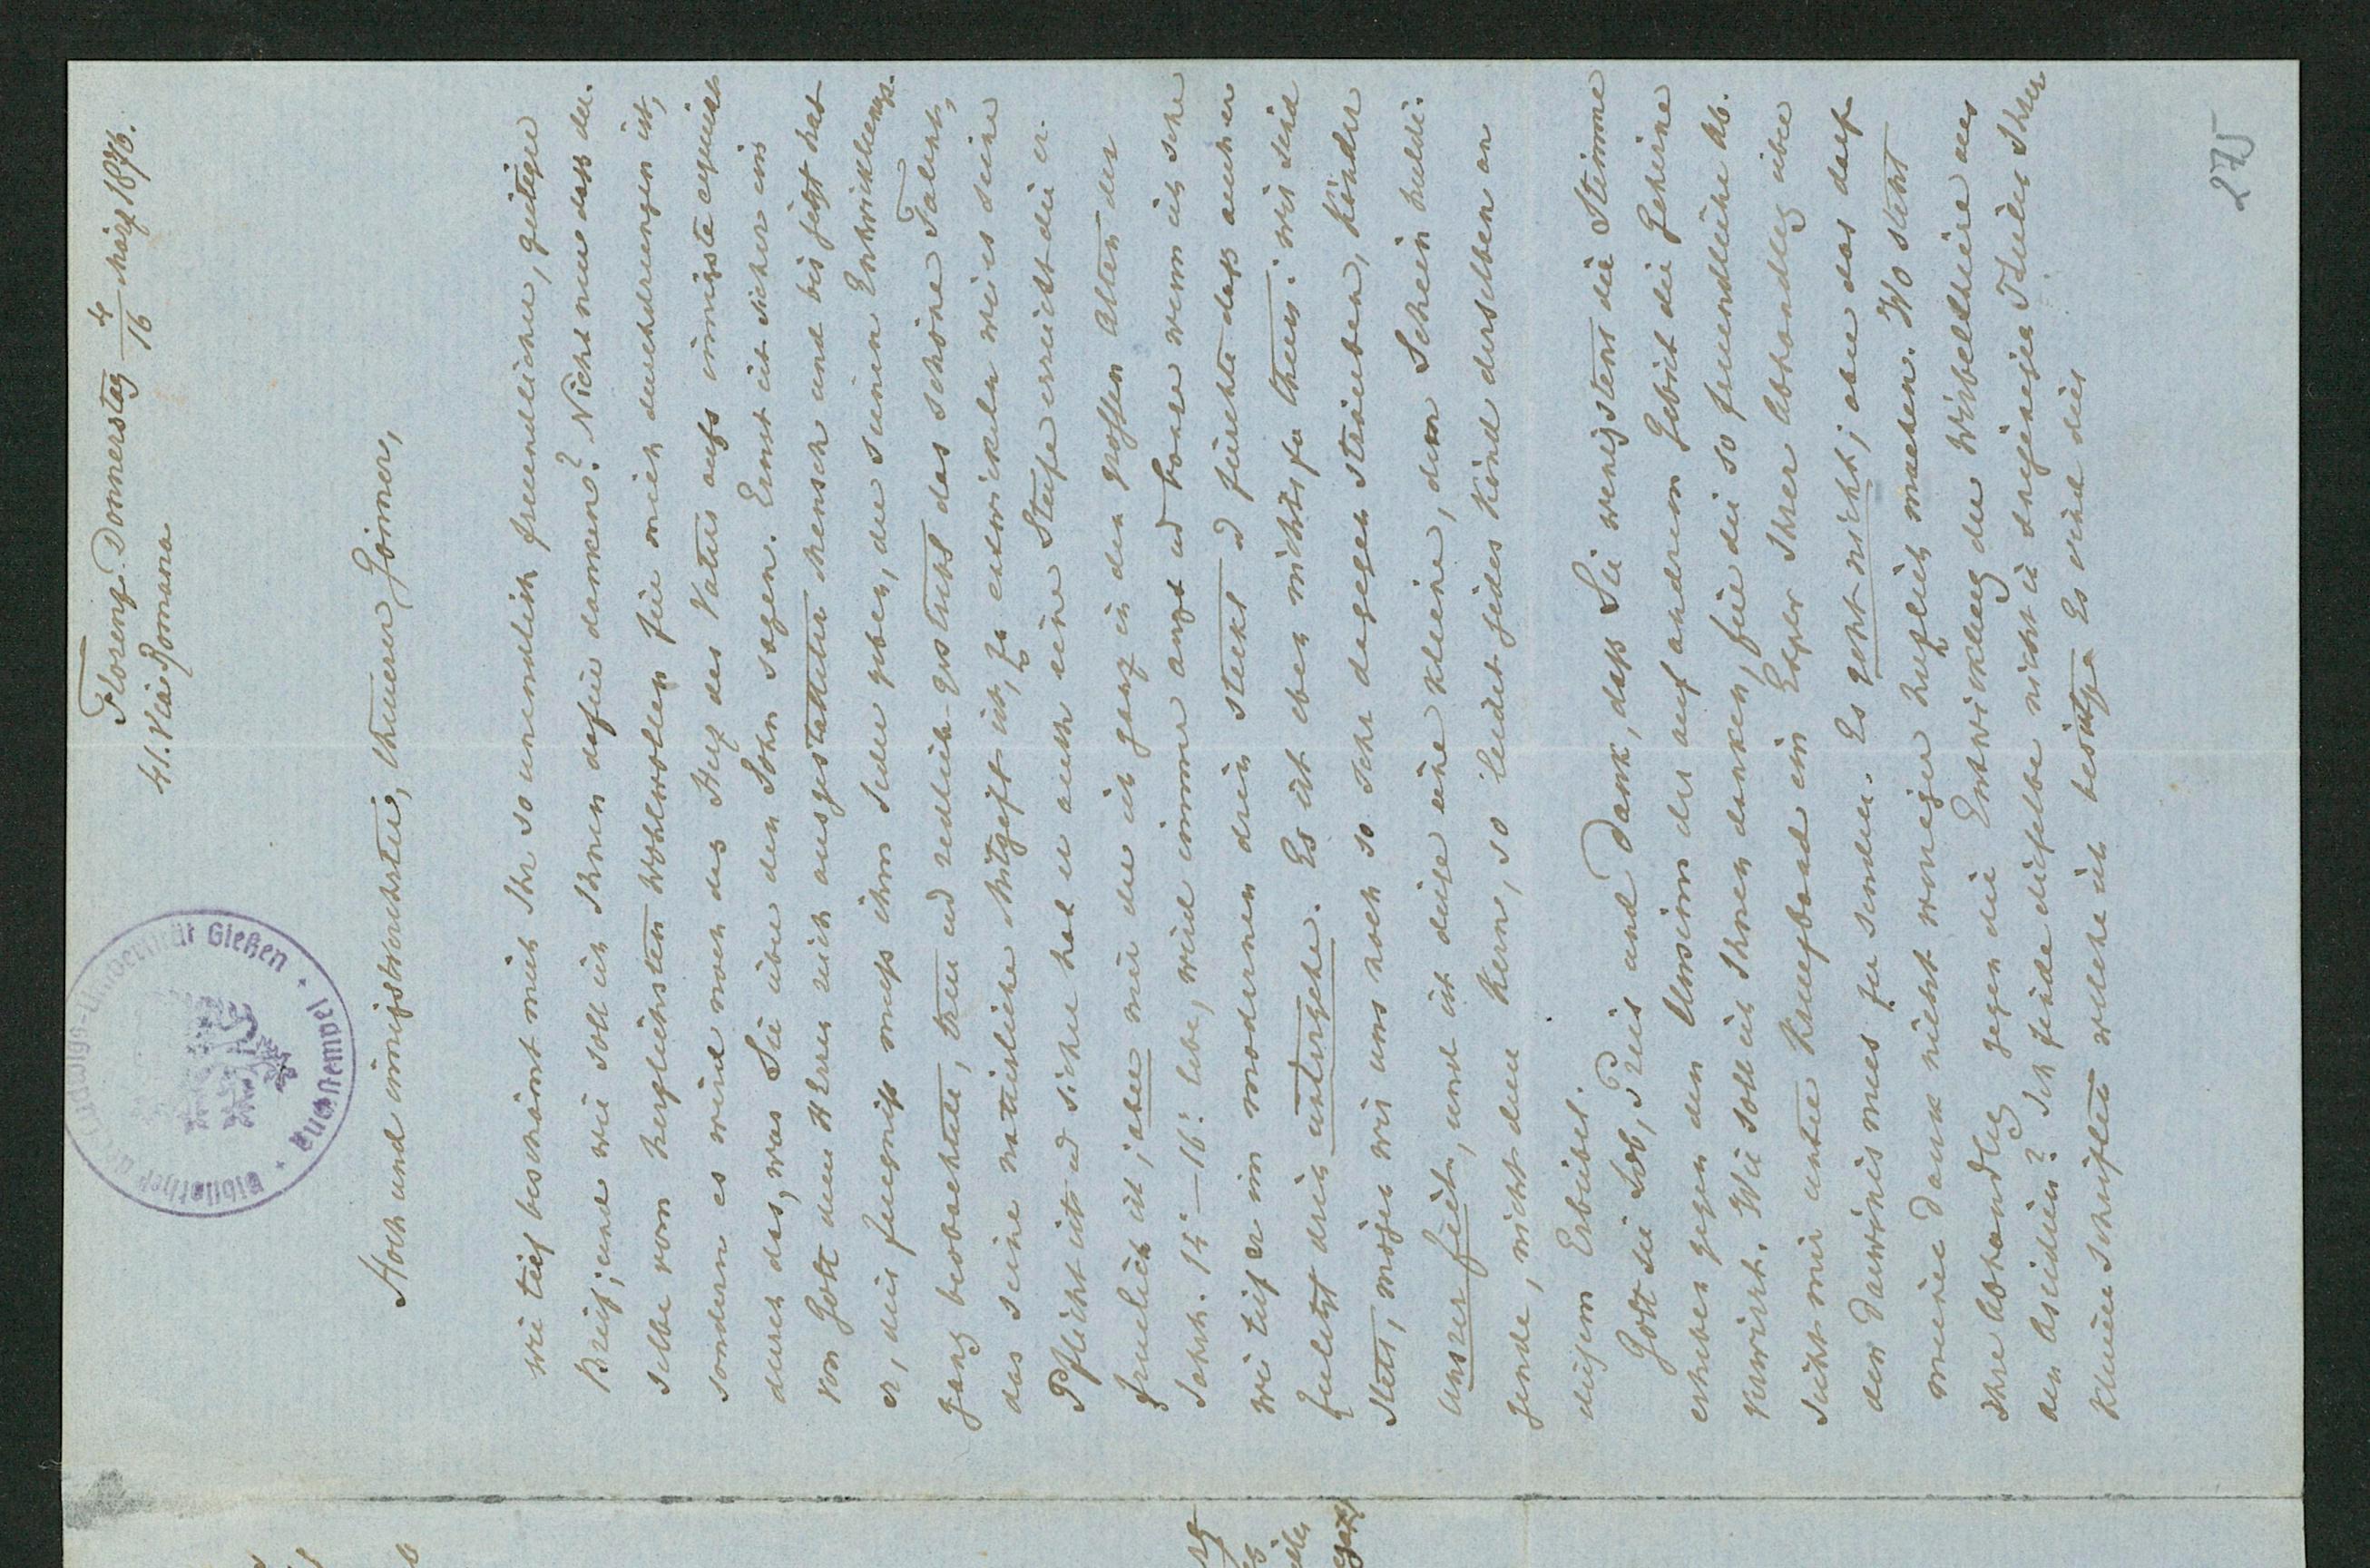 Florenz. Donnerstag 4/16 März 1876.
41. Via Romana
Bibliothek der Ludwigs-Universität Gießen · Buchstempel ·
Hoch und innigstverehrter, theurer Gönner,
wie tief beschämt mich Ihr so unendlich freundlicher, gütiger
Brief; und wie soll ich Ihnen dafür danken? Nicht nur dass der-
selbe vom herzlichsten Wohlwollen für mich durchdrungen ist,
sondern es wird noch das Herz des Vaters aufs innigste erquickt
durch das, was Sie über den Sohn sagen. Ernst ist sicher ein
von Gott dem HErrn reich ausgestatteter Mensch und bis jetzt hat
er, dies Zeugniss muss ihm Jeder geben, der seinen Entwicklungs-
gang beobachtete, treu und redlich gestrebt das schöne Talent,
das seine natürliche Mitgift ist, zu entwickeln wie es seine
Pflicht ist und sicher hat er auch eine Stufe erreicht die er-
freulich ist; aber mir der ich ganz in den grossen Alten des
Jahrh. 15.–16. lebe, wird immer angst und bange wenn ich sehe
wie tief er im modernen drin steckt und fürchte dass auch er
zuletzt drin untergehe. Es ist eben nichts zu thun: wir sind
stets, mögen wir uns noch so sehr dagegen sträuben, Kinder
unserer Zeit, und ist diese eine kleine, dem Schein huldi-
gende, nicht dem Kern, so leidet jedes Kind derselben an
diesem Erbübel.
Gott sei Lob, Preis und Dank, dass Sie wenigstens die Stimme
erheben gegen den Unsinn der auf anderem Gebiet die Gehirne
verwirrt. Wie soll ich Ihnen danken, für die so freundliche Ab-
sicht mir unter Kreuzband ein Expl. Ihrer Abhandlg über
den Darwinismus zu senden. Es geht nicht; aber das darf
meinen Dank nicht weniger herzlich machen. Wo steht
Ihre Abhandlg gegen die Entwicklung der Wirbelthiere aus
den Ascidien? Ich finde dieselbe nicht in den Theilen Ihrer
kleinen Schriften welche ich besitze. Es sind dies
275